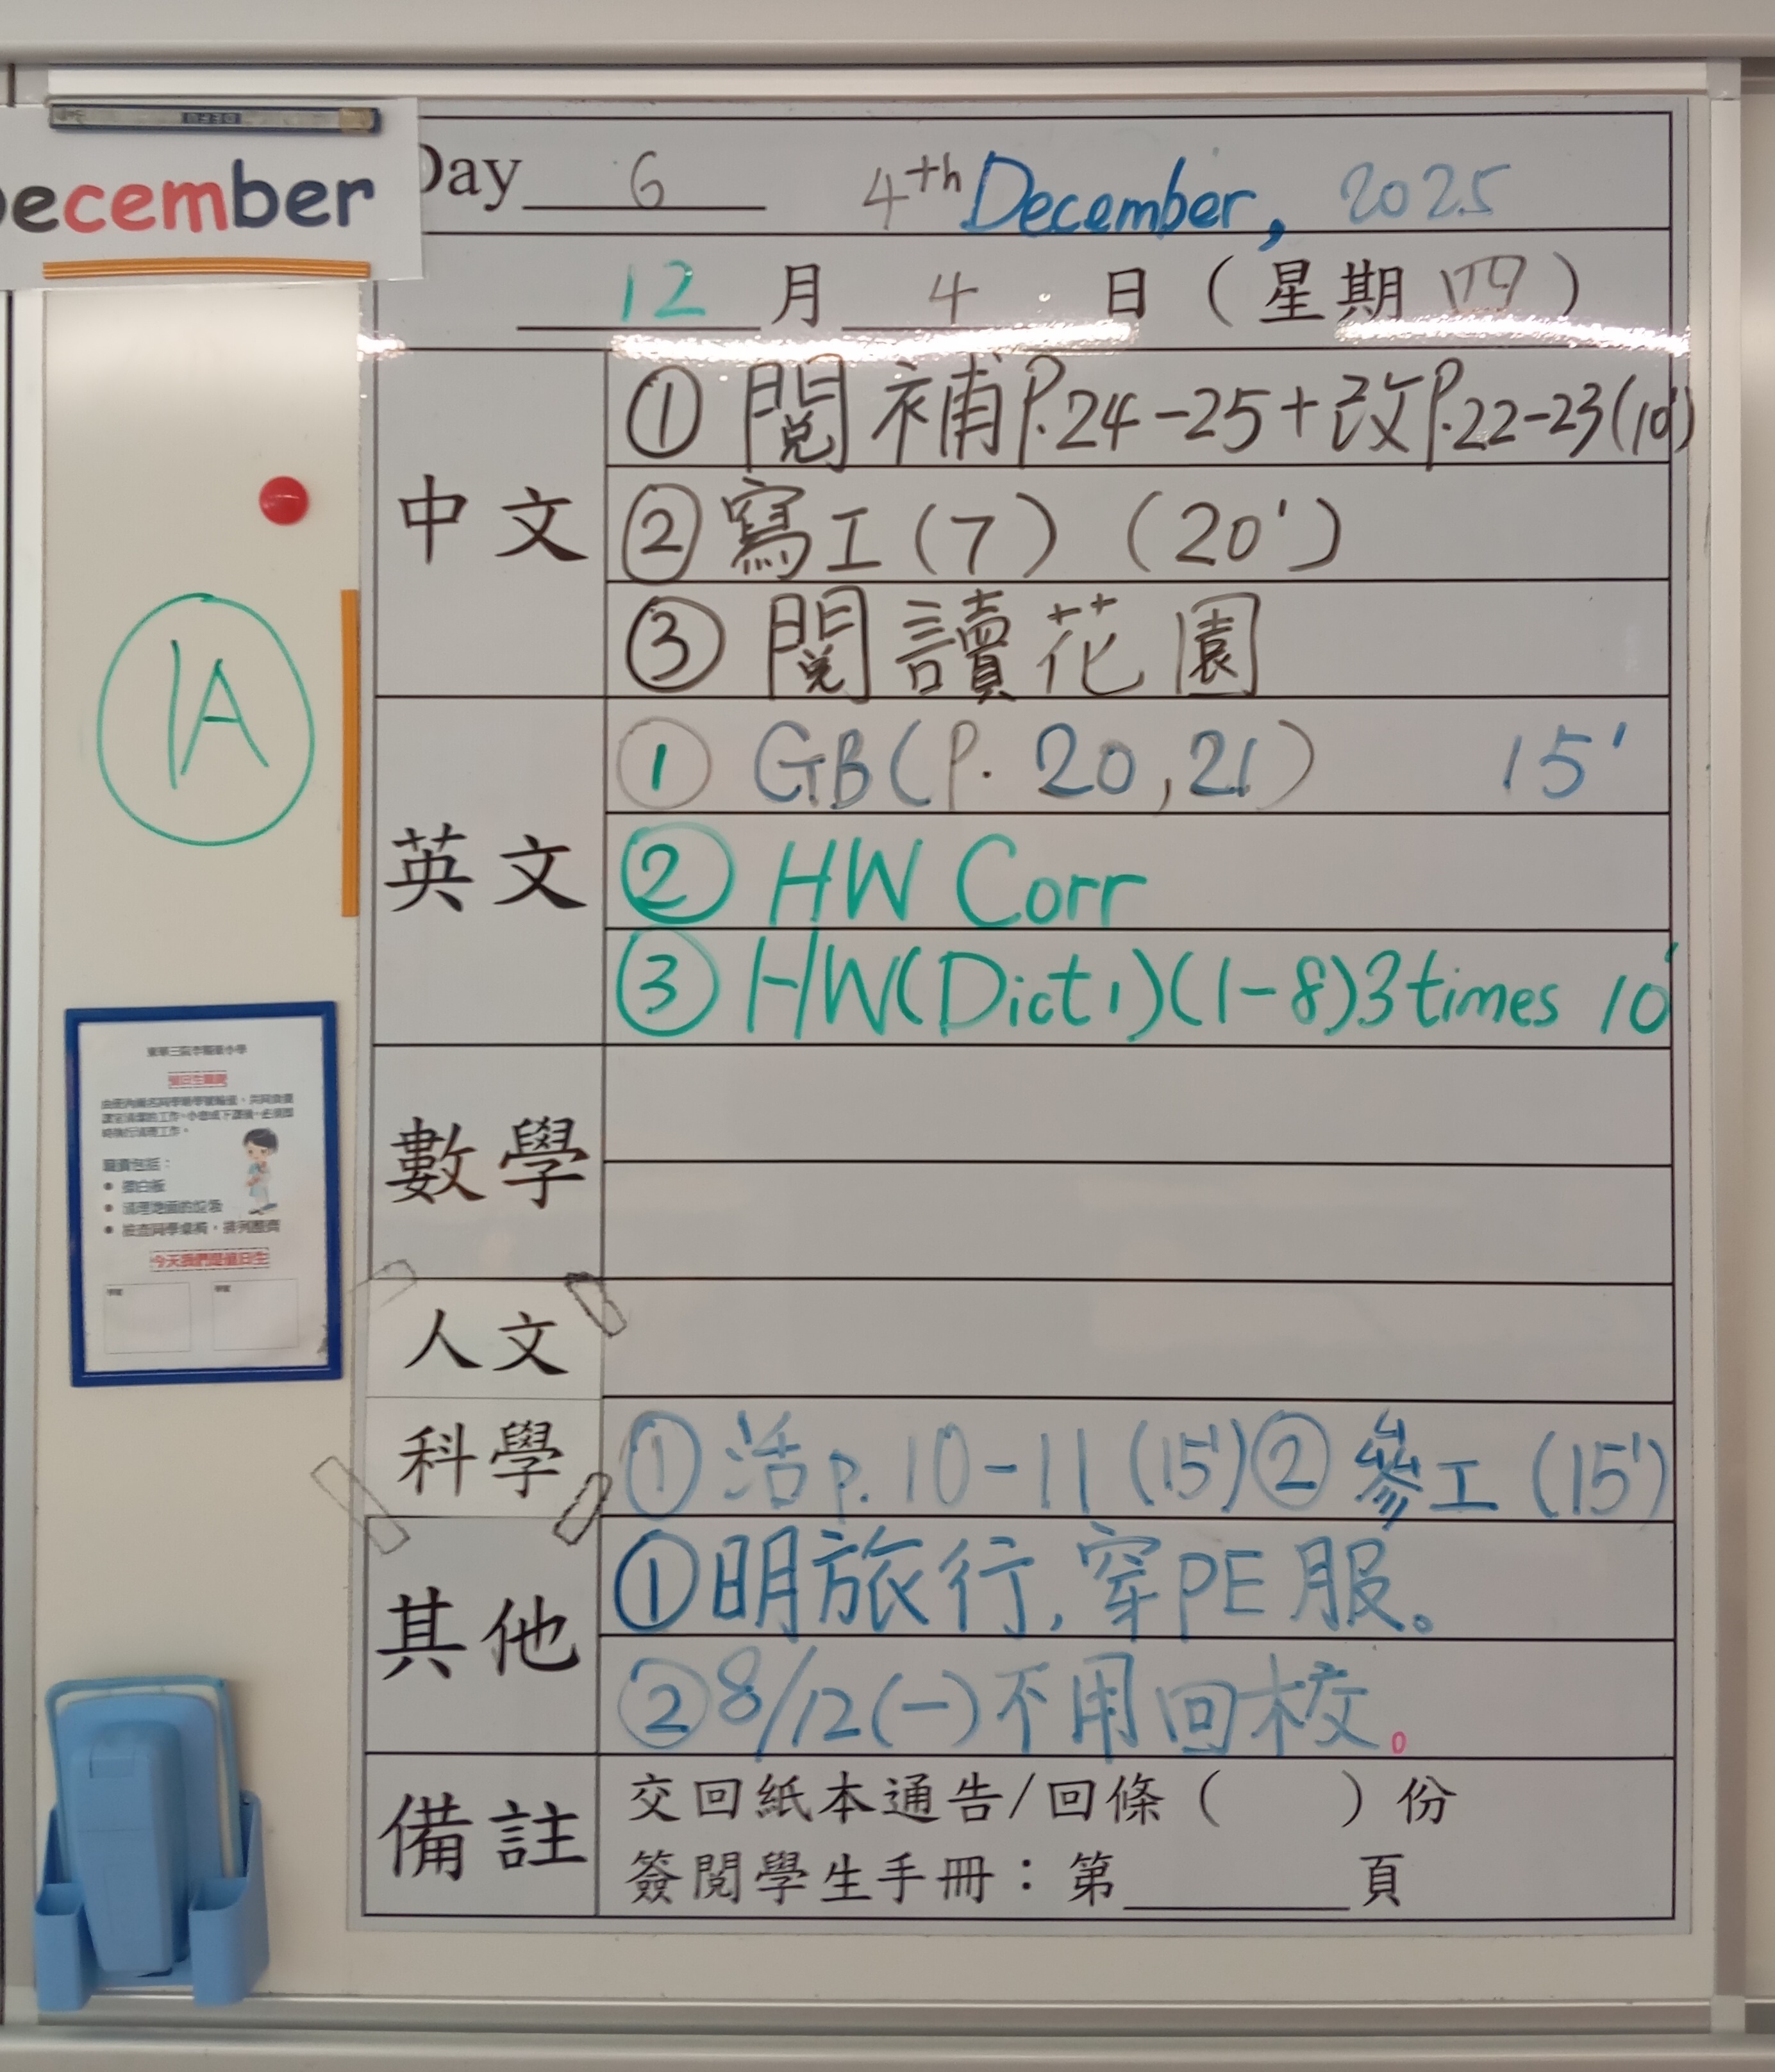 December
Day 6 4th December, 2025
12 月 4 日 (星期四)
中文
① 閱補P.24-25+改P.22-23(10')
② 寫工(7) (20')
③ 閱讀花園
1A
英文
① GB(P. 20,21) 15'
② HW Corr
③ HW(Dict1)(1-8)3times 10'
數學
人文
科學
① 活p.10-11(15')② 參工(15')
其他
①明旅行,穿PE服。
②8/12(一)不用回校。
備註
交回紙本通告/回條( )份
簽閱學生手冊:第 頁
職責包括:
今天我們是值日生